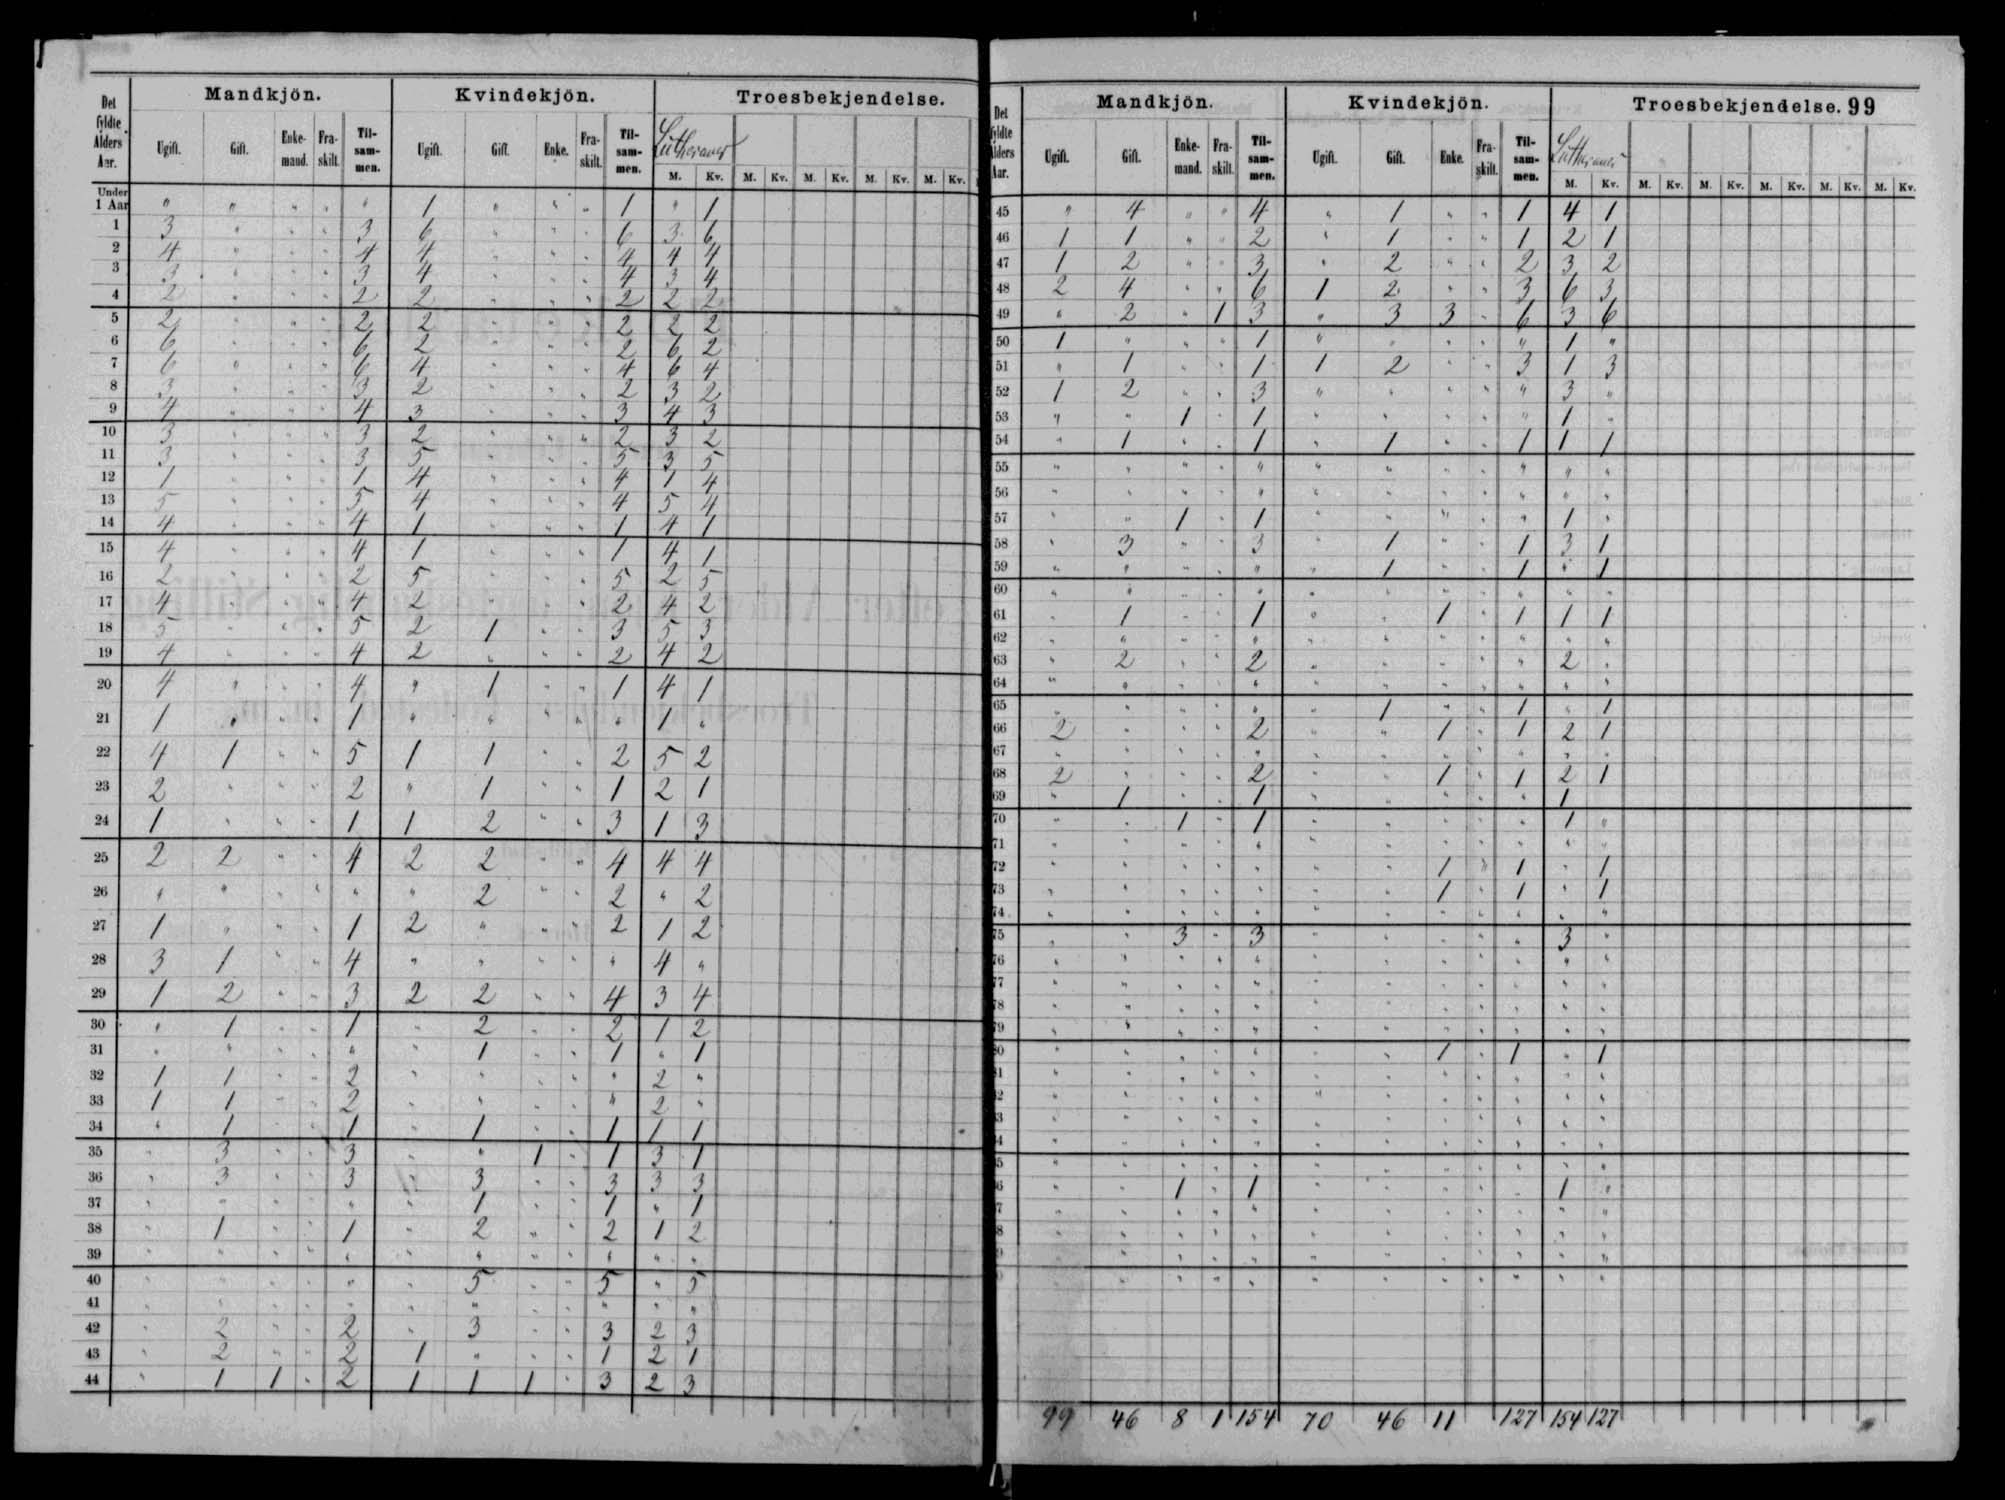 Mandkjön. Kvindekjön. Troesbekjendelse.
Det fyldte Alders Aar. Ugift. Gift. Enke-mand. Fra-skilt. Til-sam-men. Ugift. Gift. Enke. Fra-skilt. Til-sam-men. Lutheraner
M. Kv. M. Kv. M. Kv. M. Kv. M. Kv.
Under 1 Aar " " " " " 1 " " " 1 " 1
1 3 " " " 3 6 " " " 6 3 6
2 4 " " " 4 4 " " " 4 4 4
3 3 " " " 3 4 " " " 4 3 4
4 2 " " " 2 2 " " " 2 2 2
5 2 " " " 2 2 " " " 2 2 2
6 6 " " " 6 2 " " " 2 6 2
7 6 " " " 6 4 " " " 4 6 4
8 3 " " " 3 2 " " " 2 3 2
9 4 " " " 4 3 " " " 3 4 3
10 3 " " " 3 2 " " " 2 3 2
11 3 " " " 3 5 " " " 5 3 5
12 1 " " " 1 4 " " " 4 1 4
13 5 " " " 5 4 " " " 4 5 4
14 4 " " " 4 1 " " " 1 4 1
15 4 " " " 4 1 " " " 1 4 1
16 2 " " " 2 5 " " " 5 2 5
17 4 " " " 4 2 " " " 2 4 2
18 5 " " " 5 2 1 " " 3 5 3
19 4 " " " 4 2 " " " 2 4 2
20 4 " " " 4 " 1 " " 1 4 1
21 1 " " " 1 " " " " " 1 "
22 4 1 " " 5 1 1 " " 2 5 2
23 2 " " " 2 " 1 " " 1 2 1
24 1 " " " 1 1 2 " " 3 1 3
25 2 2 " " 4 2 2 " " 4 4 4
26 " " " " " " 2 " " 2 " 2
27 1 " " " 1 2 " " " 2 1 2
28 3 1 " " 4 " " " " " 4 "
29 1 2 " " 3 2 2 " " 4 3 4
30 " 1 " " 1 " 2 " " 2 1 2
31 " " " " " " 1 " " 1 " 1
32 1 1 " " 2 " " " " " 2 "
33 1 1 " " 2 " " " " " 2 "
34 " 1 " " 1 " 1 " " 1 1 1
35 " 3 " " 3 " " 1 " 1 3 1
36 " 3 " " 3 " 3 " " 3 3 3
37 " " " " " " 1 " " 1 " 1
38 " 1 " " 1 " 2 " " 2 1 2
39 " " " " " " " " " " " "
40 " " " " " " 5 " " 5 " 5
41 " " " " " " " " " " " "
42 " 2 " " 2 " 3 " " 3 2 3
43 " 2 " " 2 1 " " " 1 2 1
44 " 1 1 " 2 1 1 1 " 3 2 3
Mandkjön. Kvindekjön. Troesbekjendelse. 99
Det fyldte Alders Aar. Ugift. Gift. Enke-mand. Fra-skilt. Til-sam-men. Ugift. Gift. Enke. Fra-skilt. Til-sam-men. Lutheraner
M. Kv. M. Kv. M. Kv. M. Kv. M. Kv. M. Kv.
45 " 4 " " 4 " 1 " " 1 4 1
46 1 1 " " 2 " 1 " " 1 2 1
47 1 2 " " 3 " 2 " " 2 3 2
48 2 4 " " 6 1 2 " " 3 6 3
49 " 2 " 1 3 " 3 3 " 6 3 6
50 1 " " " 1 " " " " " 1 "
51 " 1 " " 1 1 2 " " 3 1 3
52 1 2 " " 3 " " " " " 3 "
53 " " 1 " 1 " " " " " 1 "
54 " 1 " " 1 " 1 " " 1 1 1
55 " " " " " " " " " " " "
56 " " " " " " " " " " " "
57 " " 1 " 1 " " " " " 1 "
58 " 3 " " 3 " 1 " " 1 3 1
59 " " " " " " 1 " " 1 " 1
60 " " " " " " " " " " " "
61 " 1 " " 1 " " 1 " 1 1 1
62 " " " " " " " " " " " "
63 " 2 " " 2 " " " " " 2 "
64 " " " " " " " " " " " "
65 " " " " " " 1 " " 1 " 1
66 2 " " " 2 " " 1 " 1 2 1
67 " " " " " " " " " " " "
68 2 " " " 2 " " 1 " 1 2 1
69 " 1 " " 1 " " " " " 1
70 " " 1 " 1 " " " " " 1 "
71 " " " " " " " " " " " "
72 " " " " " " " 1 " 1 " 1
73 " " " " " " " 1 " 1 " 1
74 " " " " " " " " " " " "
75 " " 3 " 3 " " " " " 3 "
76 " " " " " " " " " " " "
77 " " " " " " " " " " " "
78 " " " " " " " " " " " "
79 " " " " " " " " " " " "
80 " " " " " " " 1 " 1 " 1
1 " " " " " " " " " " " "
2 " " " " " " " " " " " "
3 " " " " " " " " " " " "
4 " " " " " " " " " " " "
5 " " " " " " " " " " " "
6 " " 1 " 1 " " " " " 1 "
7 " " " " " " " " " " " "
8 " " " " " " " " " " " "
9 " " " " " " " " " " " "
0 " " " " " " " " " " " "
99 46 8 1 154 70 46 11 127 154 127